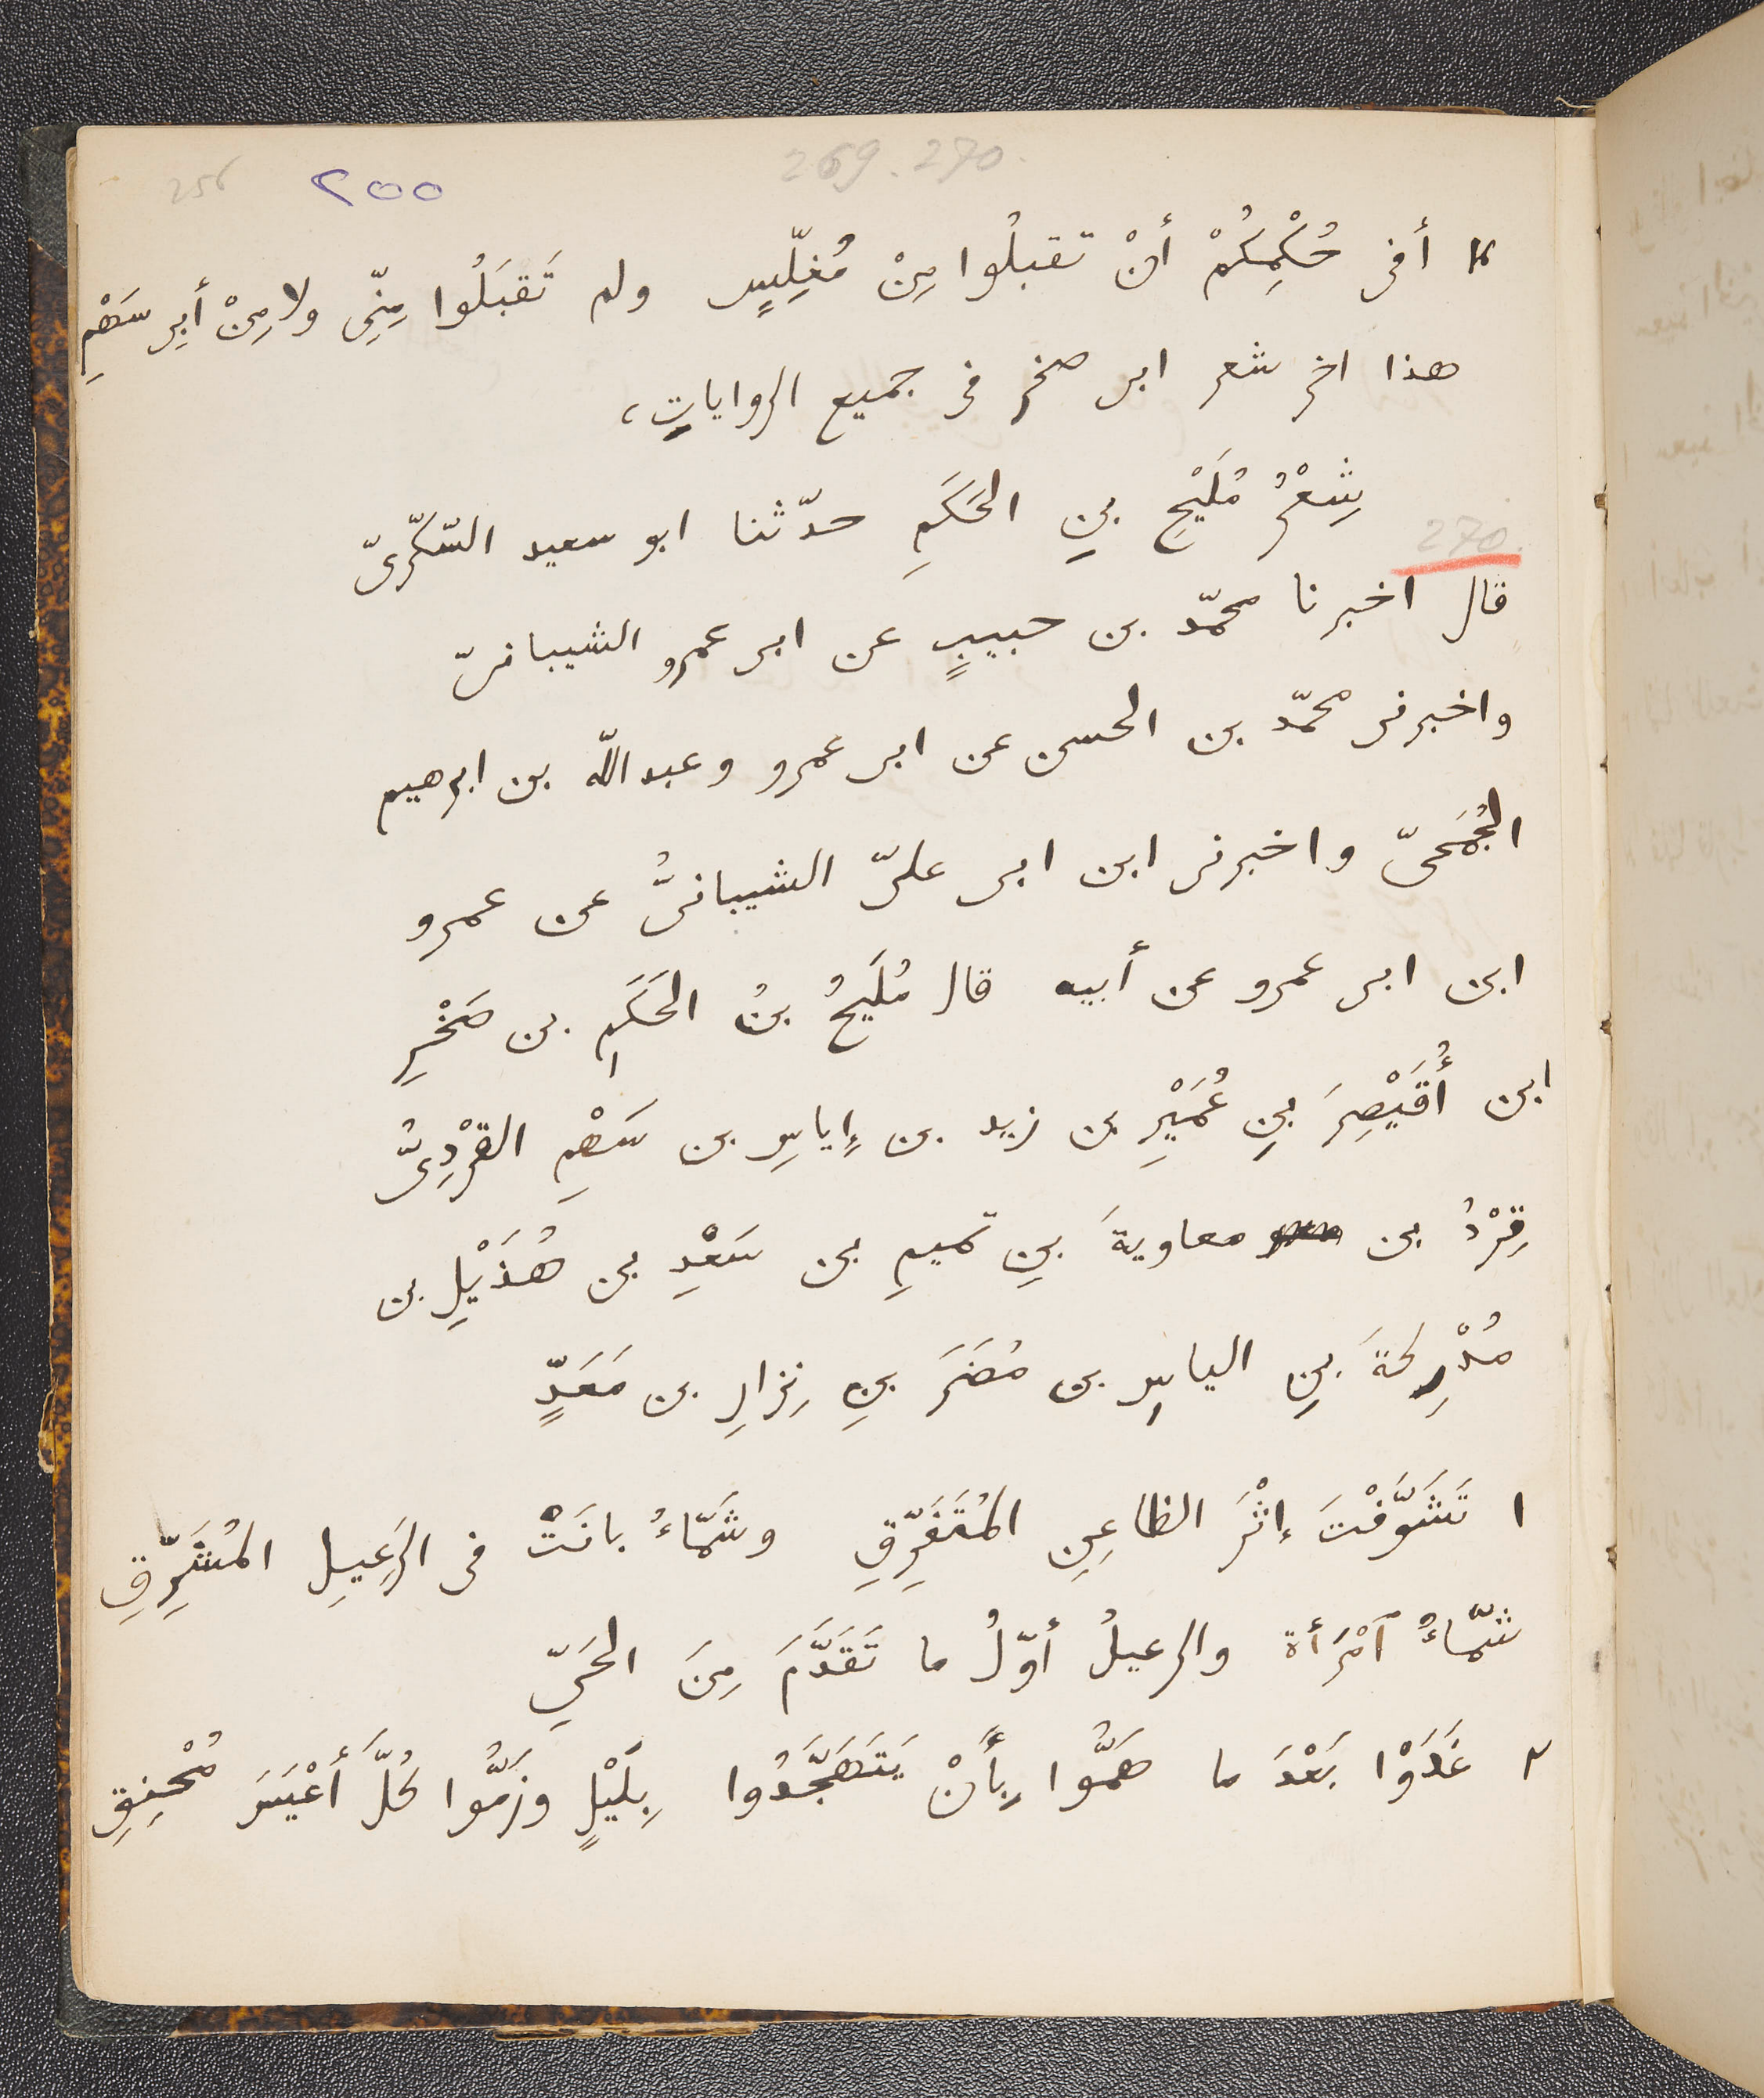 269.270.
256 ٢٥٥
أفى حُكْمِكُمْ أنْ تقبلُوا مِنْ مُغلِّسٍ ولم تَقبَلُوا مِنِّى ولا مِنْ أبى سَهْمِ
هذا اخر شعر ابى صخر فى جميع الروايات،
شِعْرُ مُلَيْحِ بنِ الحَكَمِ حدّثنا ابو سعيد السّكّرىّ
270.
قال اخبرنا محمّد بن حبيبٍ عن ابى عمرو الشيبانىّ
واخبرنى محمّد بن الحسن عن ابى عمرو وعبد اللّه بن ابرهيم
الجُمَحىّ واخبرنى ابن ابى علىّ الشيبانىُّ عن عمرو
ابن ابى عمرو عن أبيه قال مُلَيحُ بنُ الحَكَمِ بن صَخْرِ
ابن أُقَيْصِرَ بنِ عُمَيْرِ بن زيد بن إياسِ بن سَهْمِ القِرْدِىُّ
قِرْدُ بن معاويةَ بنِ تميمِ بن سَعْدِ بن هُذَيْلِ بن
مُدْرِكةَ بنِ الياسِ بن مُضَرَ بنِ نِزارِ بن مَعَدٍّ
١ تَشَوَّفْتَ إثْرَ الظاعِنِ المُتَفَرِّقِ وشَمّاءُ بانَتْ فى الرَعِيلِ المُشَرِّقِ
شمّاءُ ٱمْرَأة والرعيلُ أوّلُ ما تَقَدَّمَ مِنَ الحَىِّ
٢ غَدَوْا بَعْدَ ما هَمُّوا بِأَنْ يَتَهَجَّدُوا بِلَيْلٍ وزَمُّوا كُلَّ أَعْيَسَ مُحْنِقِ